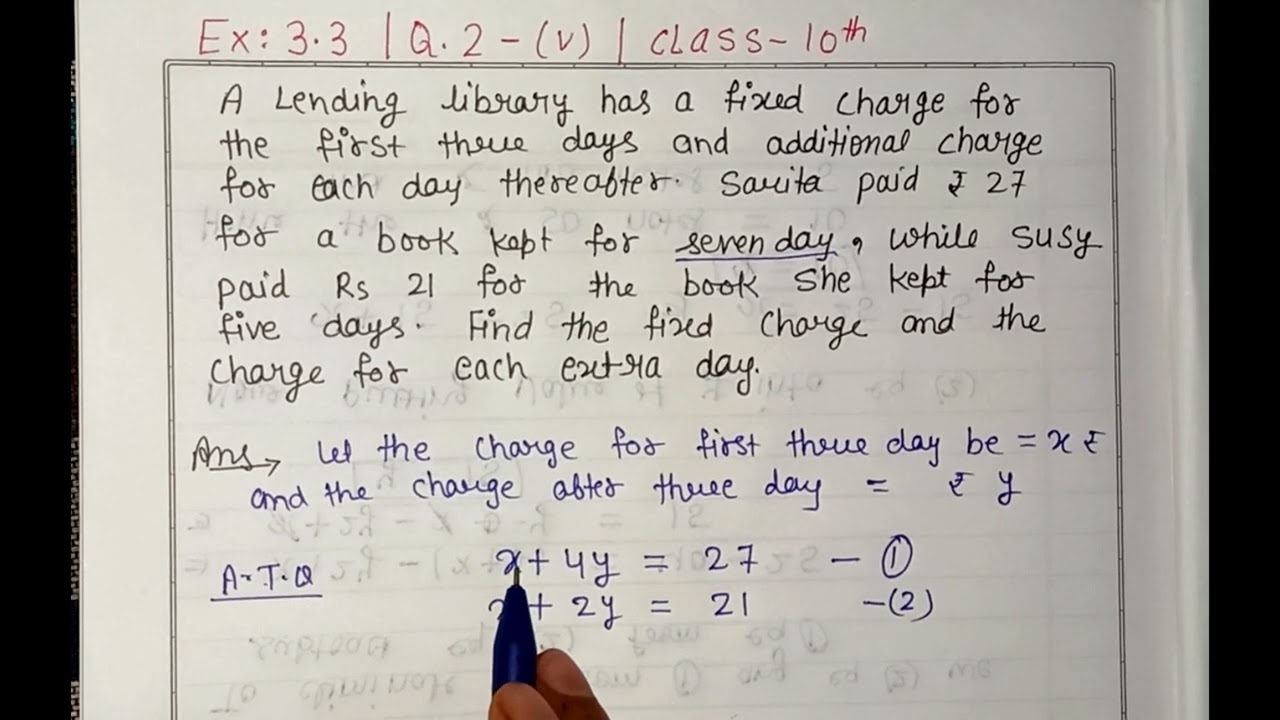 Ex: 3.3 | Q.2-(v) | CLASS-10th
A Lending library has a fixed charge for
the first three days and additional charge
for each day thereafter. Sarita paid ₹ 27
for a book kept for seven day, while susy
paid Rs 21 for the book she kept for
five days. Find the fixed charge and the
charge for each extra day.
Ans → Let the charge for first three day be = x ₹
and the charge after three day = ₹ y
A.T.Q x + 4y = 27 - ①
+ 2y = 21 -(2)